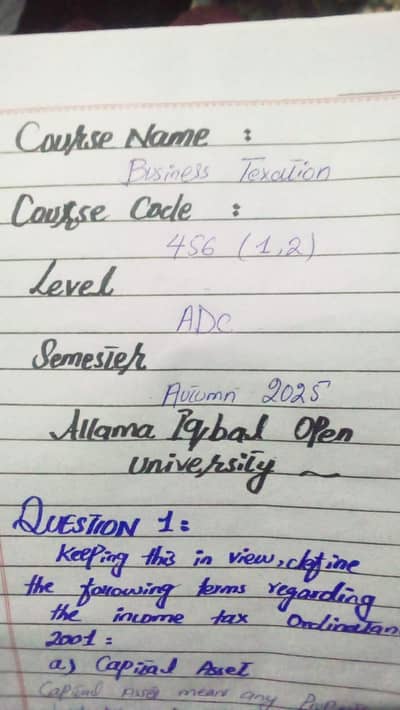 Course Name :
Business Texation
Course Code :
456 (1,2)
Level
ADC
Semester
Autumn 2025
Allama Iqbal Open
University
QUESTION 1:
Keeping this in view, define
the following terms regarding
the income tax Ordinatan
2001:
a) Capital Asset
Capital Asset mean any